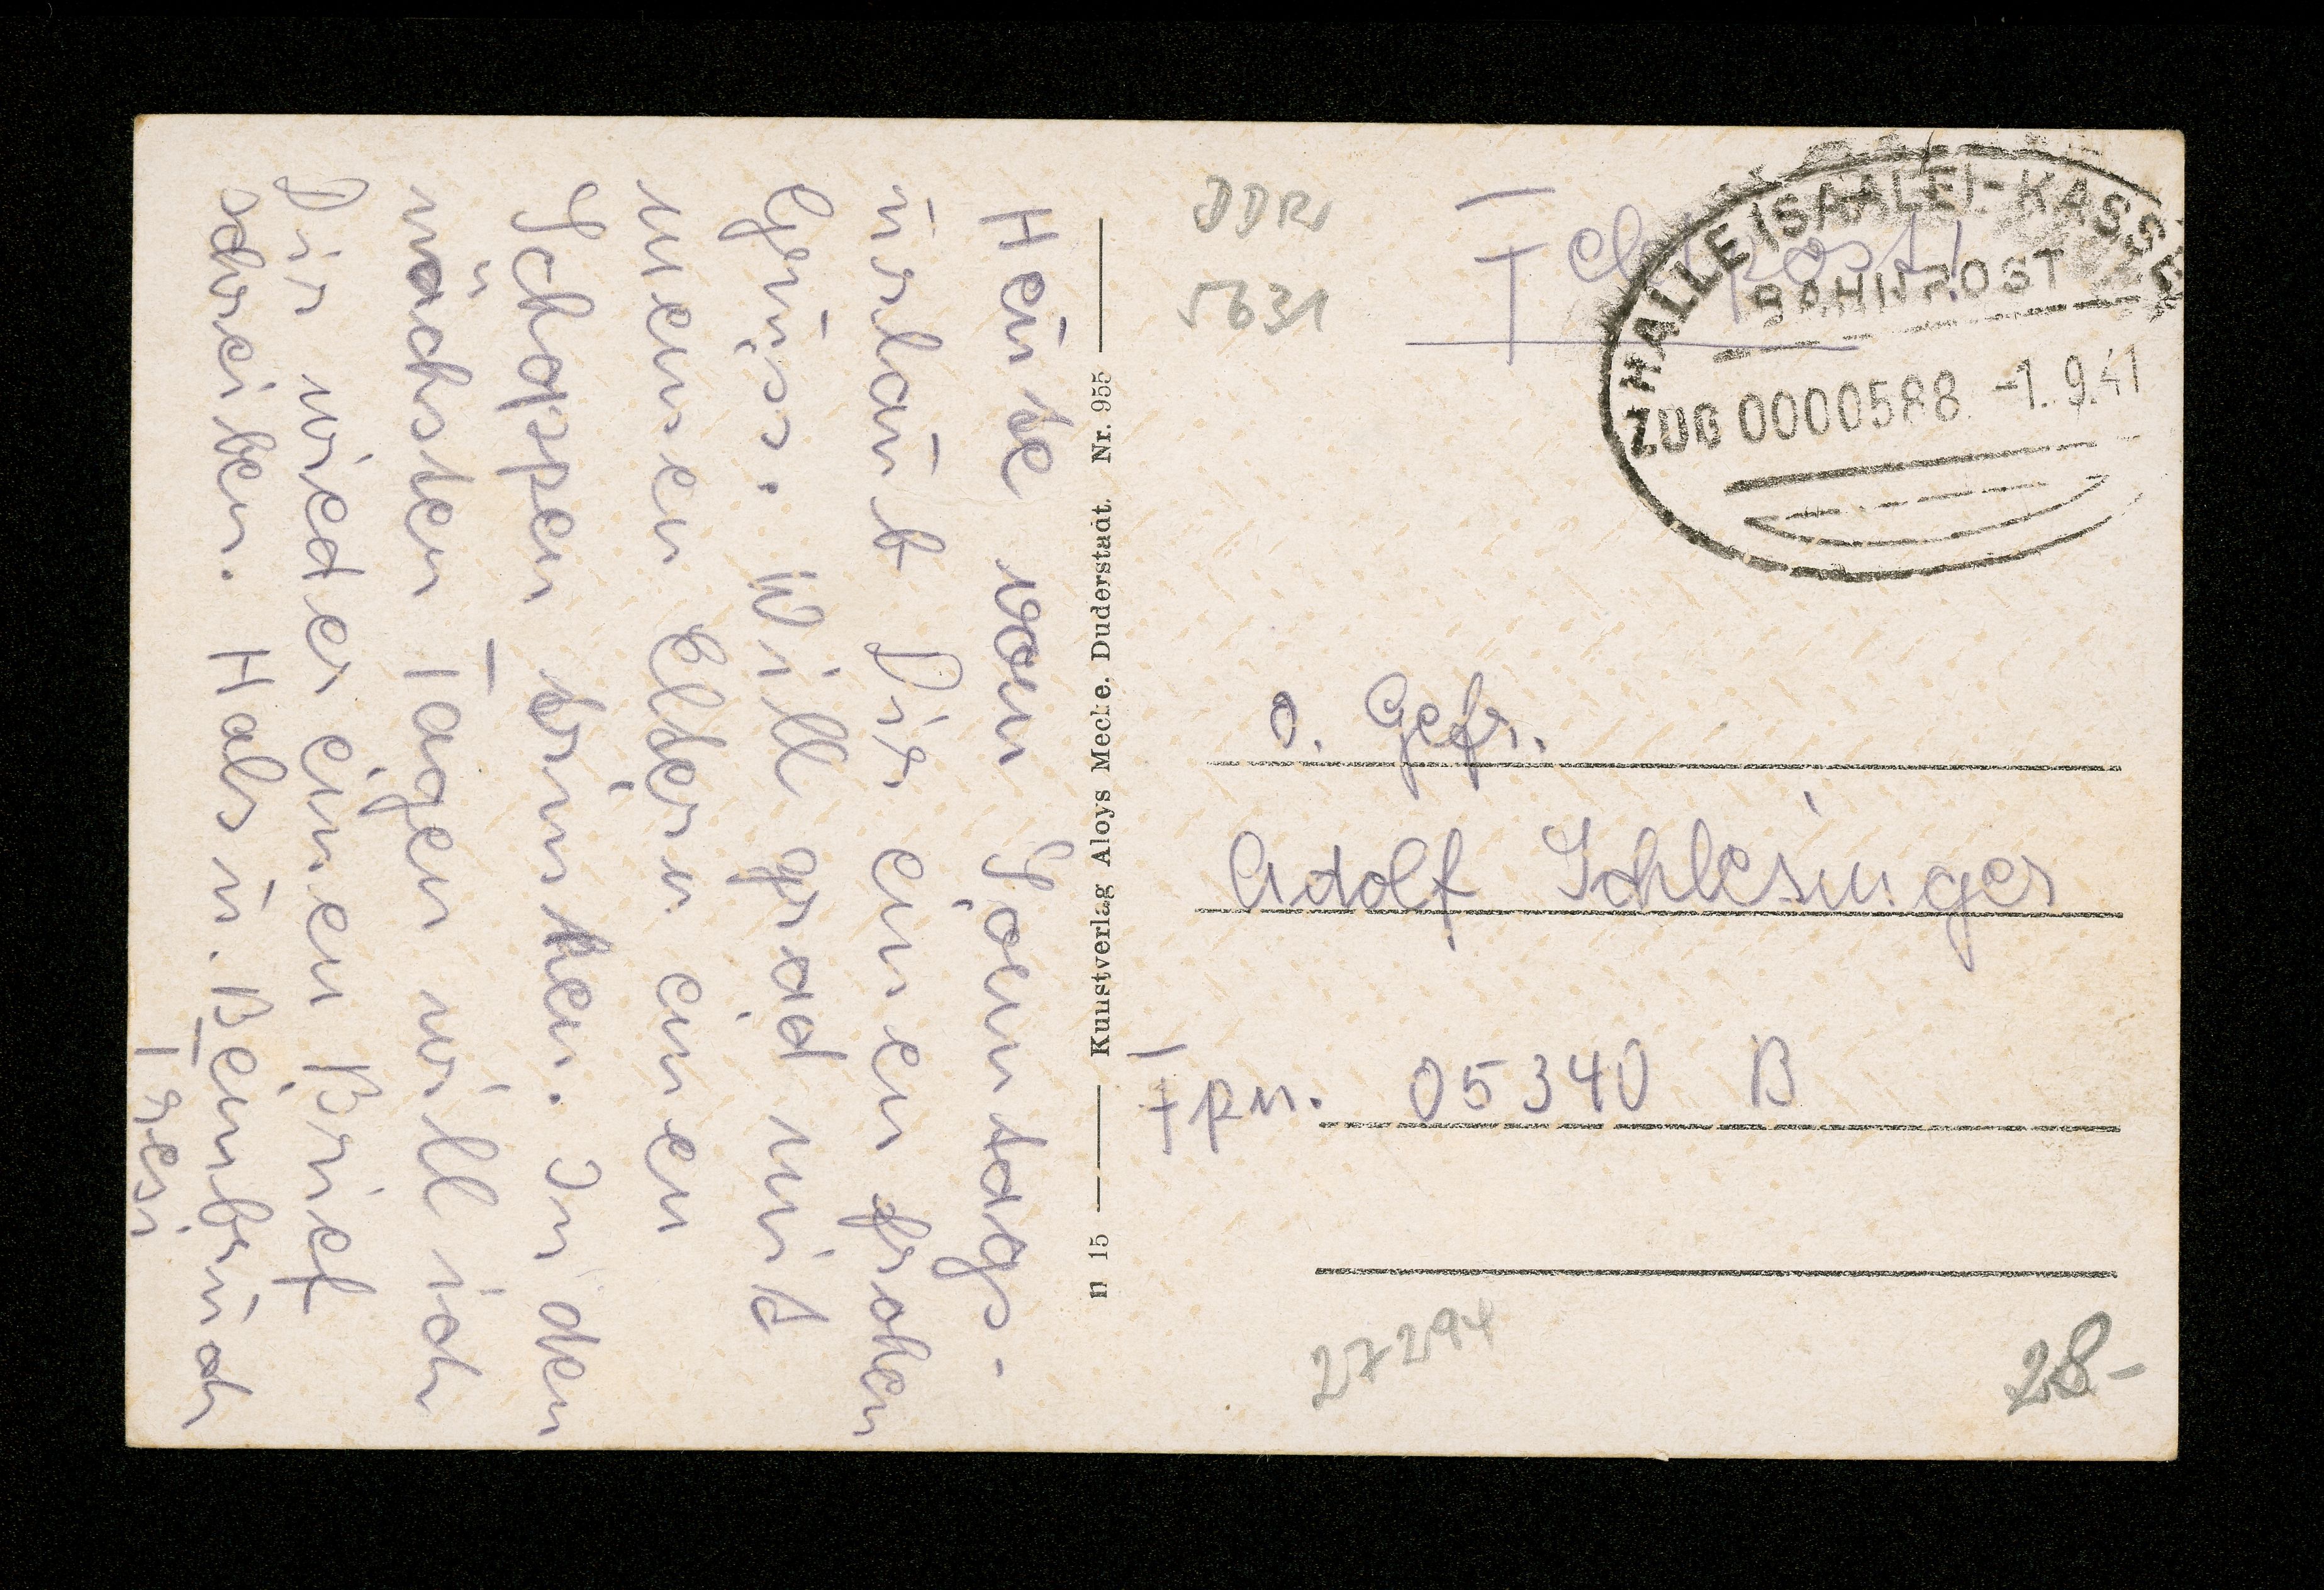 Heute vom Sonntags-
urlaub Dir einen frohen
Gruss. Will grad mit
meinen Eltern einen
Schoppen trinken. In den
nächsten Tagen will ich
Dir wieder einen Brief
schreiben. Hals u. Beinbruch
n 15 Kunstverlag Aloys Mecke, Duderstadt. Nr. 955
DDR
5631
Feldpost!
HALLE (SAALE)-KASSEL
BAHNPOST
ZUG 0000588 -1.9.41
O. Gefr.
Adolf Schlesinger
Fpn. 05340 B
27294
28-